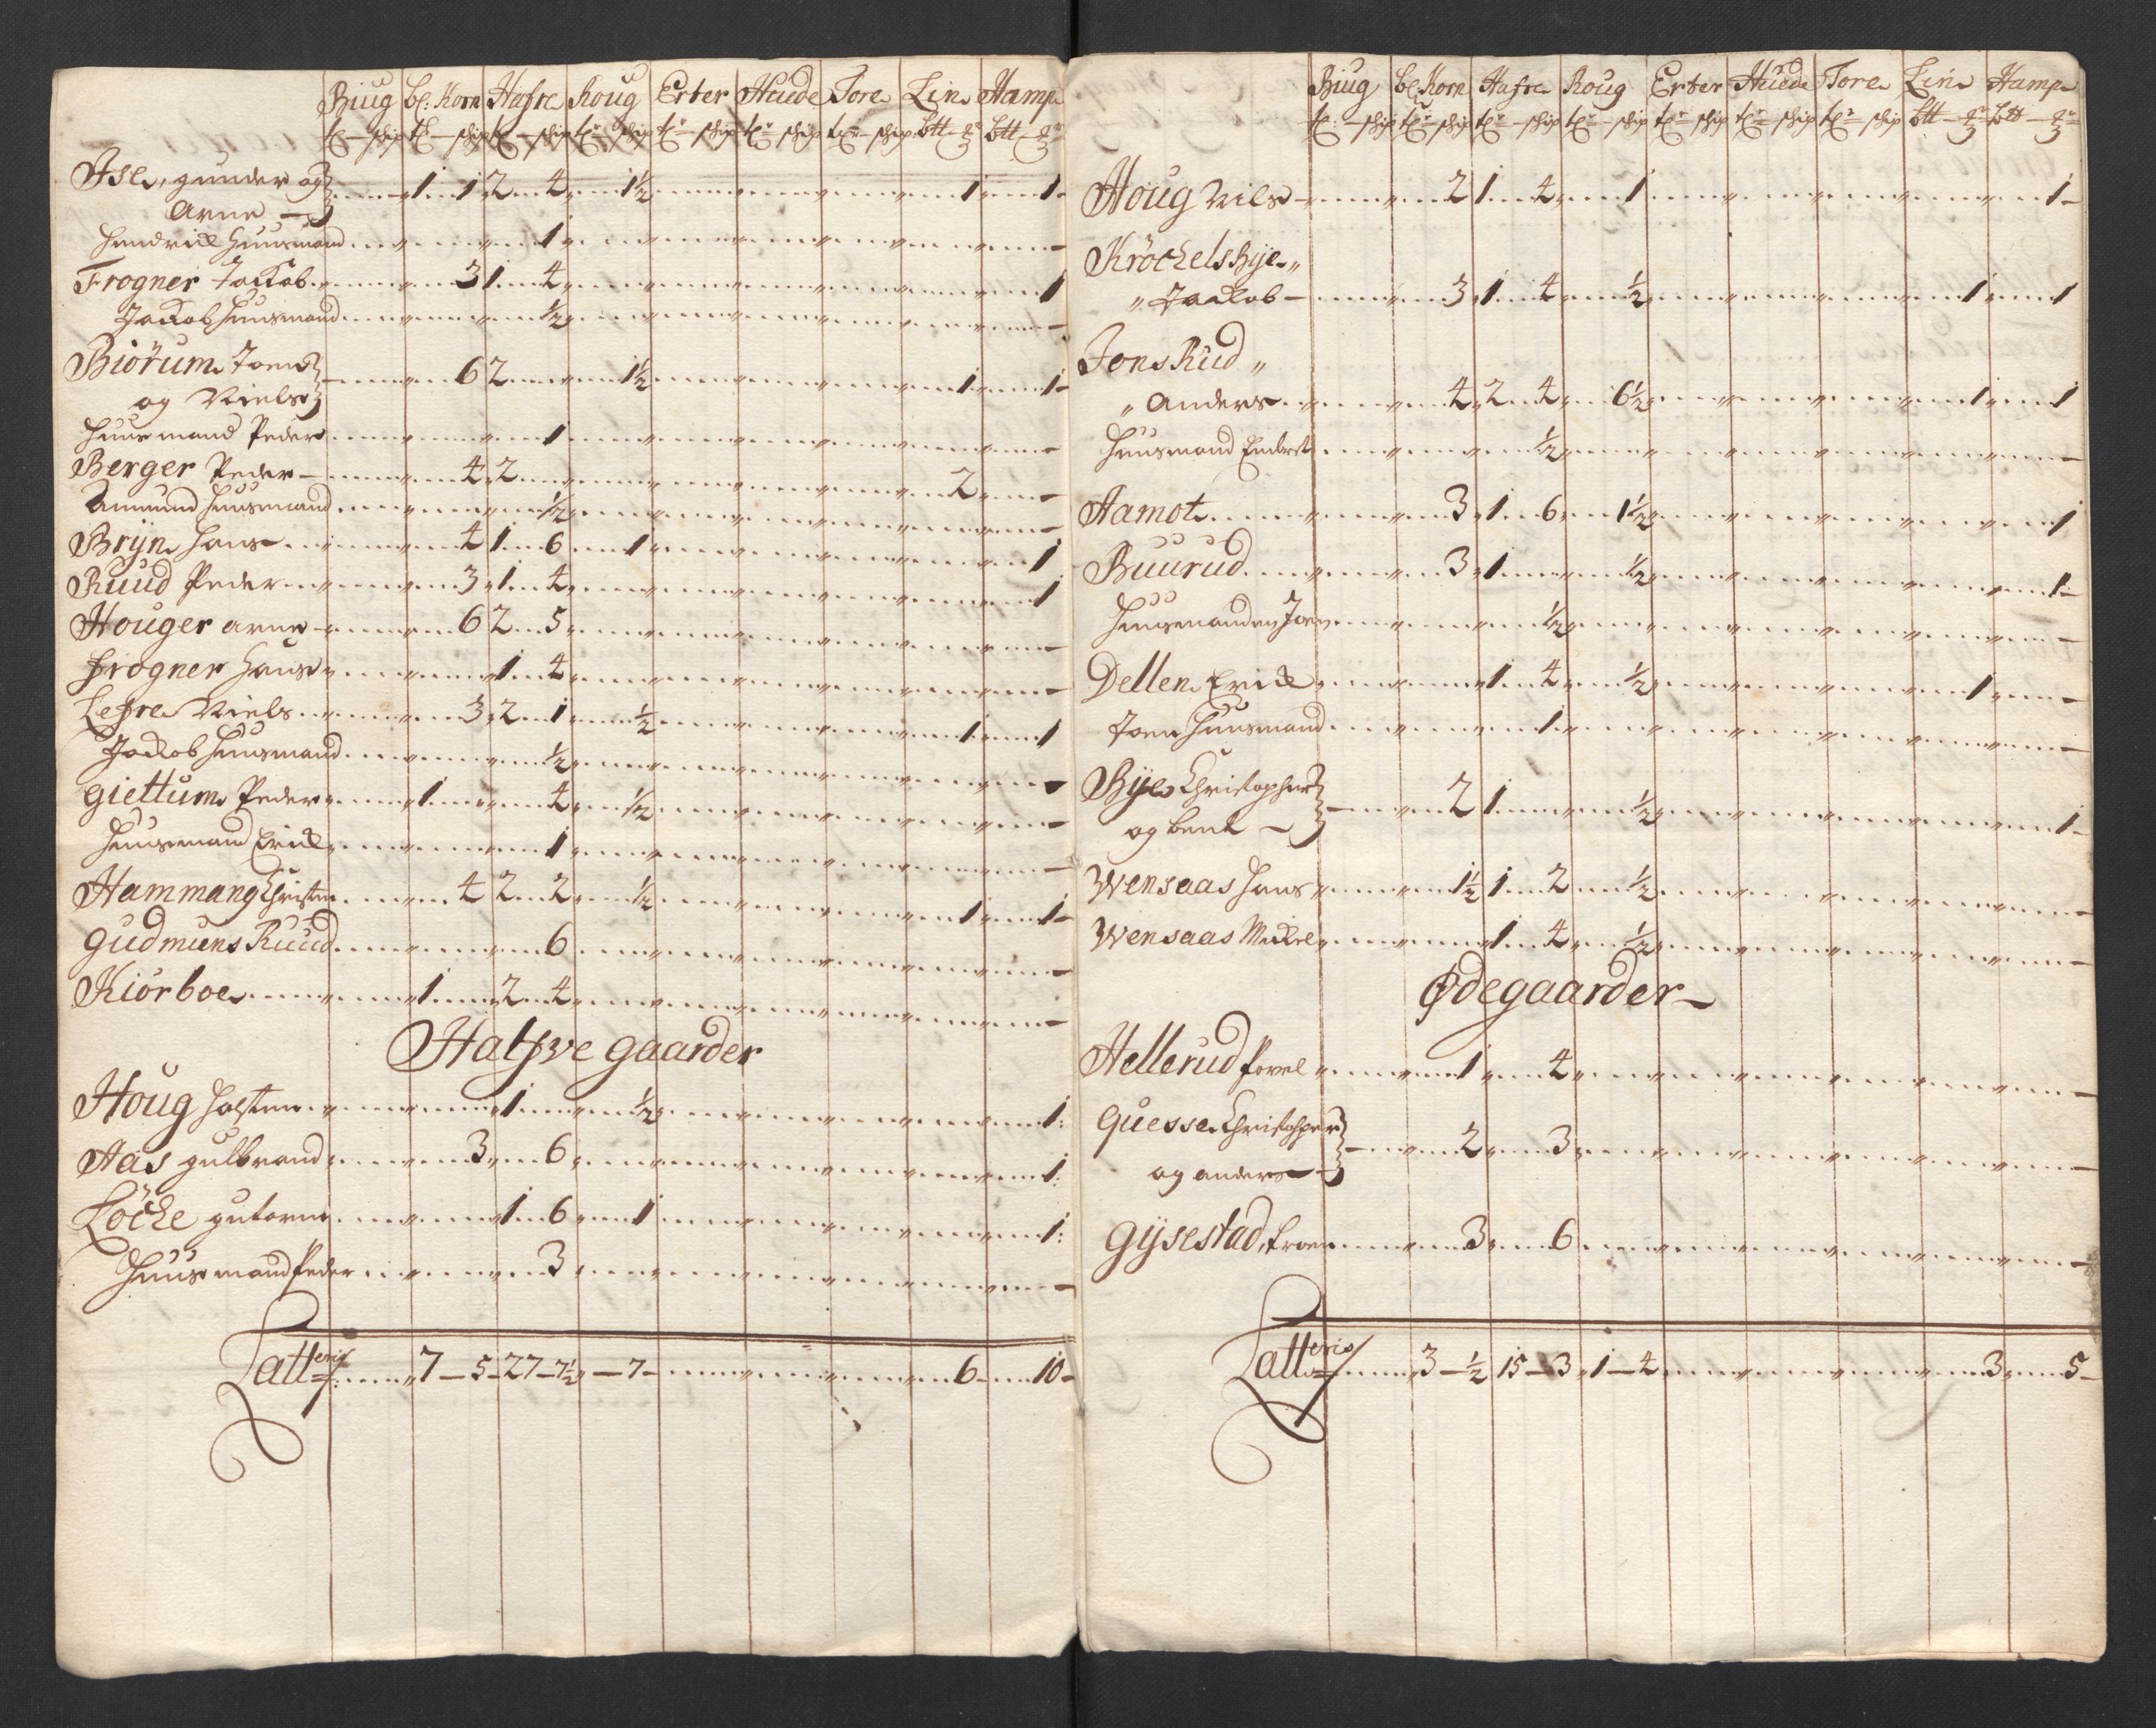 Biug bl: Korn Hafre Roug Erter Huede Tore Lin Hamp
Asle, gunder og
Arne - 1 . 1 2 . 4 1½ 1 1
Hendrick Huusmand 1
Frogner Jackob 3 1 4 1
Jackob Huusmand ½
Biörum Joen
og Niels 6 2 1½ 1 1
Huusmand Peder 1
Berger Peder - 4 2 2
Amund Huusmand ½
Brÿn Hans 4 1 6 1 1
Ruud Peder 3 1 4 1
Houger arne 6 2 5
frogner Hans 1 4
Lefre Niels 3 2 1 ½ 1 1
Jackob Huusmand ½
giettum Peder 1 4 ½
Huusmand Erick 1
Hammang Christen 4 2 2 ½ 1 1
Gudmuns Ruud 6
Kiörboe 1 2 4
Halfve gaarder
Houg Halsten 1 ½ 1
Aas gulbrand 3 6 1
Löcke gutorm 1 6 1 1
Huusmand Peder 3
Latteris 7 - 5 - 27 - 7½ - 7 6 10
Biug bl: Korn Hafre Roug Erter Huede Tore Lin Hamp
Houg Nils 2 1 4 1 1
Kröckels bÿe
Jackob - 3 1 4 ½ 1 1
Jons Rud
Anders 4 2 4 6½ 1 1
Huusmand Endret ½
Aamot 3 1 6 1½ 1
Buurud 3 1 ½ 1
Huusmanden Joen ½
Dellen Erick 1 4 ½ 1
Joen Huusmand 1
Bÿe Christopher
og bent - 2 1 ½ 1
Wensaas Hans 1½ 1 2 ½
Wensaas Mickel 1 4 ½
Ødegaarder
Hellerud Povel 1 4
Quesse Christopher
og anders 2 3
gÿsestad, troen 3 6
Latteris 3 - ½ 15 - 3 1 - 4 3 5